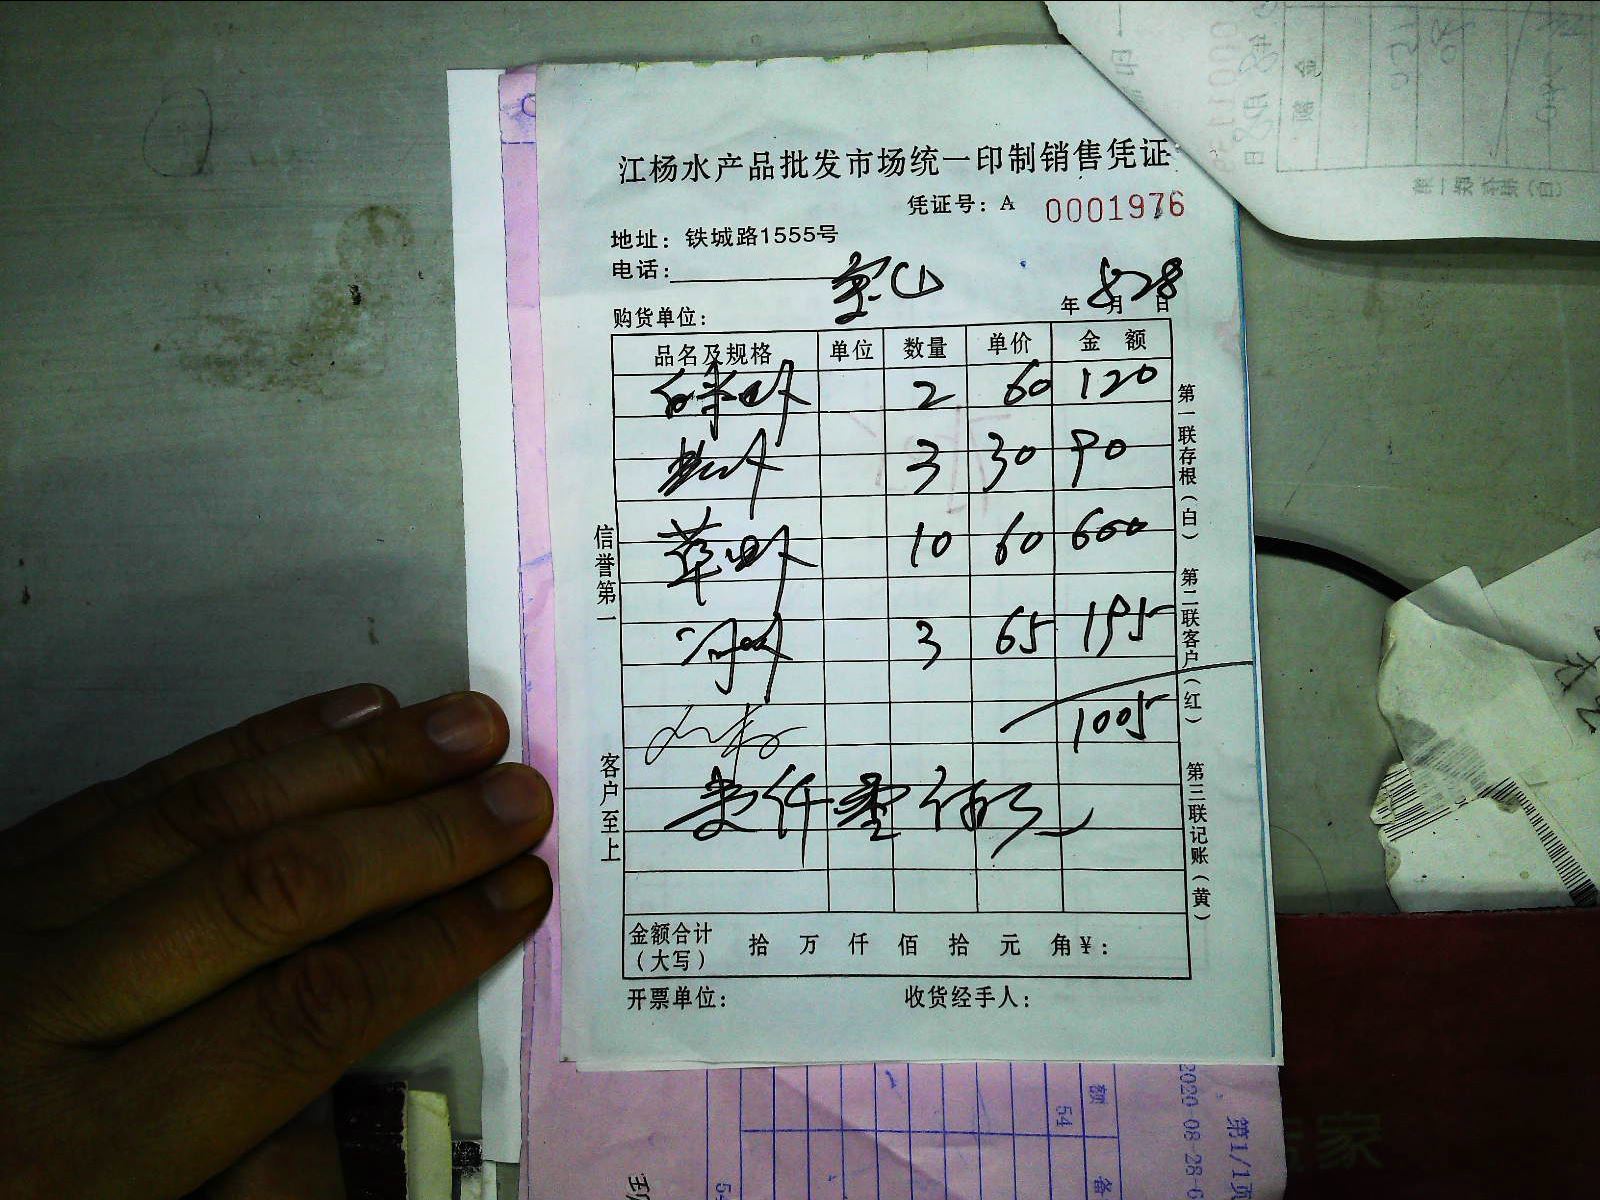 江杨水产品批发市场统一印制销售凭证
凭证号：A 0001976
地址：铁城路1555号
电话：
宝山
购货单位： 年 8月28日
品名及规格 单位 数量 单价 金额
白米虾 2 60 120
3 30 90
草虾 10 60 600
河虾 3 65 195
1005
壹仟零伍元
金额合计（大写） 拾 万 仟 佰 拾 元 角 ¥：
开票单位： 收货经手人：
信誉第一
客户至上
第一联存根（白）
第二联客户（红）
第三联记账（黄）
2020-08-28
第1/1页
额
54
备